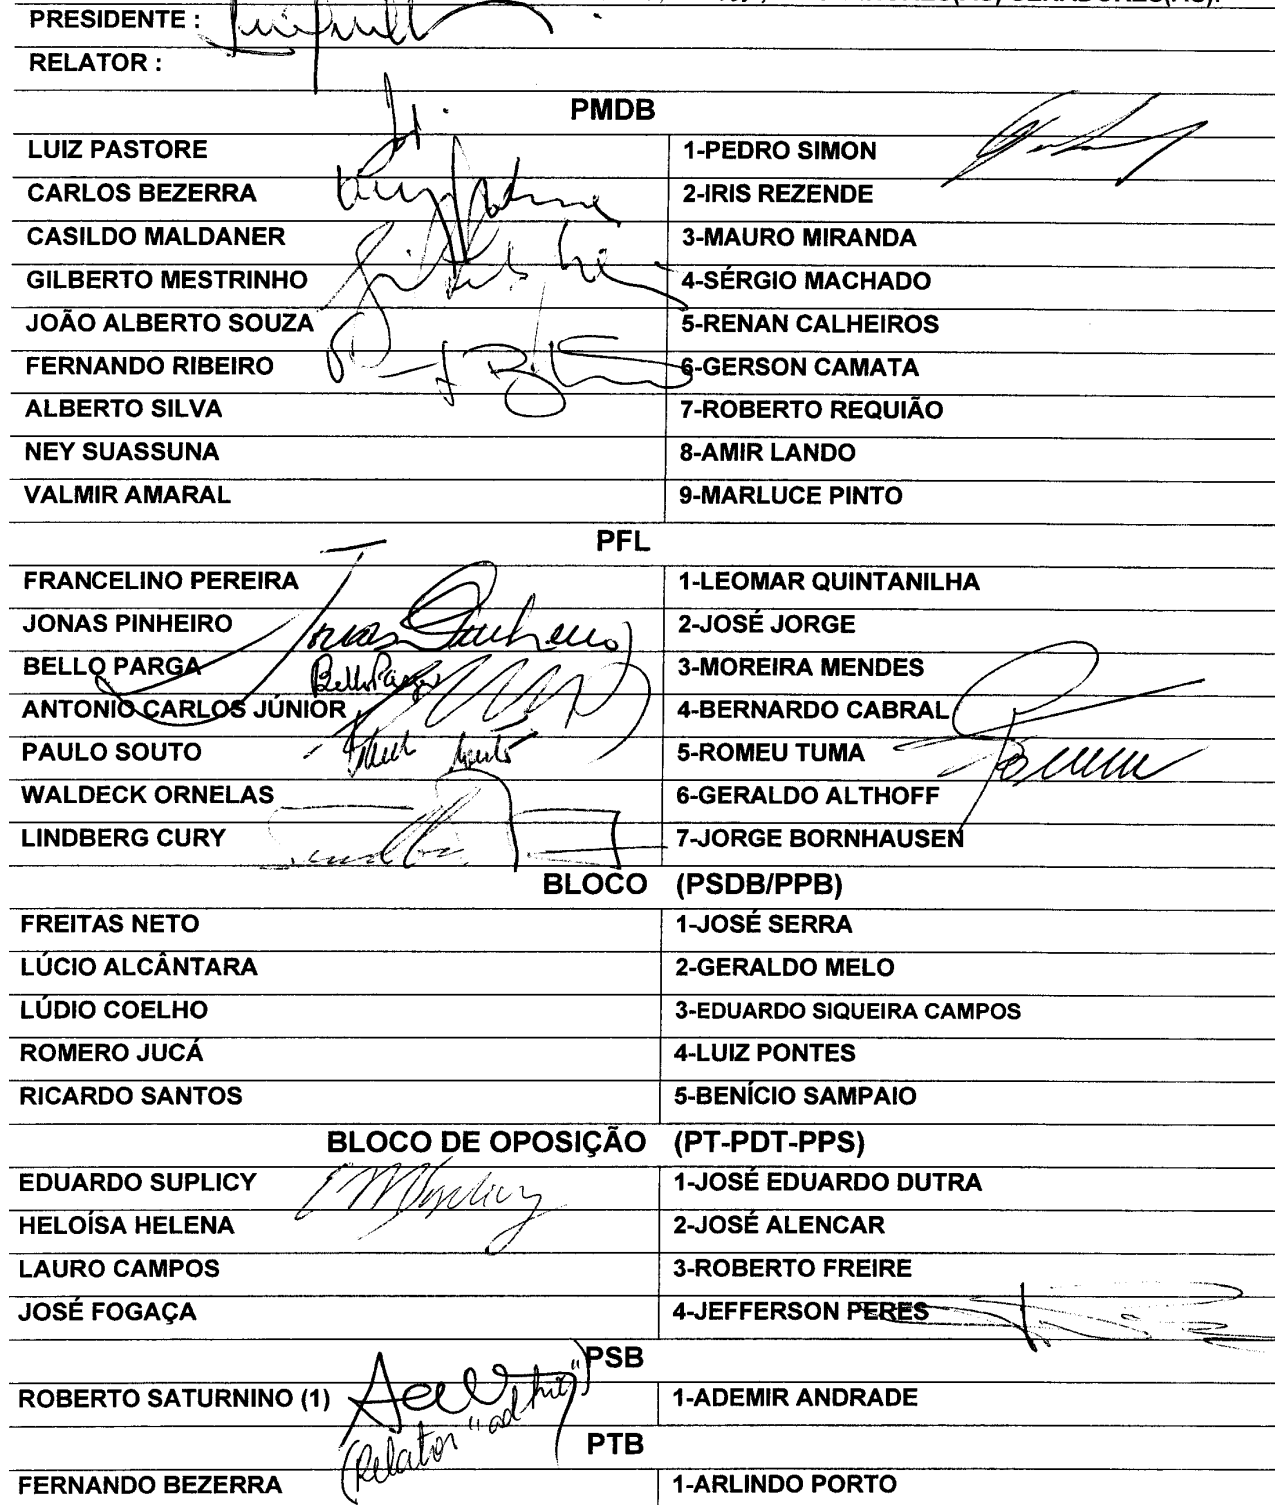 PRESIDENTE :
RELATOR :
PMDB
LUIZ PASTORE 1-PEDRO SIMON
CARLOS BEZERRA 2-IRIS REZENDE
CASILDO MALDANER 3-MAURO MIRANDA
GILBERTO MESTRINHO 4-SÉRGIO MACHADO
JOÃO ALBERTO SOUZA 5-RENAN CALHEIROS
FERNANDO RIBEIRO 6-GERSON CAMATA
ALBERTO SILVA 7-ROBERTO REQUIÃO
NEY SUASSUNA 8-AMIR LANDO
VALMIR AMARAL 9-MARLUCE PINTO
PFL
FRANCELINO PEREIRA 1-LEOMAR QUINTANILHA
JONAS PINHEIRO Jonas Pinheiro 2-JOSÉ JORGE
BELLO PARGA Bello Parga 3-MOREIRA MENDES
ANTONIO CARLOS JÚNIOR 4-BERNARDO CABRAL
PAULO SOUTO Paulo Souto 5-ROMEU TUMA
WALDECK ORNELAS 6-GERALDO ALTHOFF
LINDBERG CURY 7-JORGE BORNHAUSEN
BLOCO (PSDB/PPB)
FREITAS NETO 1-JOSÉ SERRA
LÚCIO ALCÂNTARA 2-GERALDO MELO
LÚDIO COELHO 3-EDUARDO SIQUEIRA CAMPOS
ROMERO JUCÁ 4-LUIZ PONTES
RICARDO SANTOS 5-BENÍCIO SAMPAIO
BLOCO DE OPOSIÇÃO (PT-PDT-PPS)
EDUARDO SUPLICY EMSuplicy 1-JOSÉ EDUARDO DUTRA
HELOÍSA HELENA 2-JOSÉ ALENCAR
LAURO CAMPOS 3-ROBERTO FREIRE
JOSÉ FOGAÇA 4-JEFFERSON PERES
PSB
ROBERTO SATURNINO (1) 1-ADEMIR ANDRADE
(Relator "ad hoc")
PTB
FERNANDO BEZERRA 1-ARLINDO PORTO